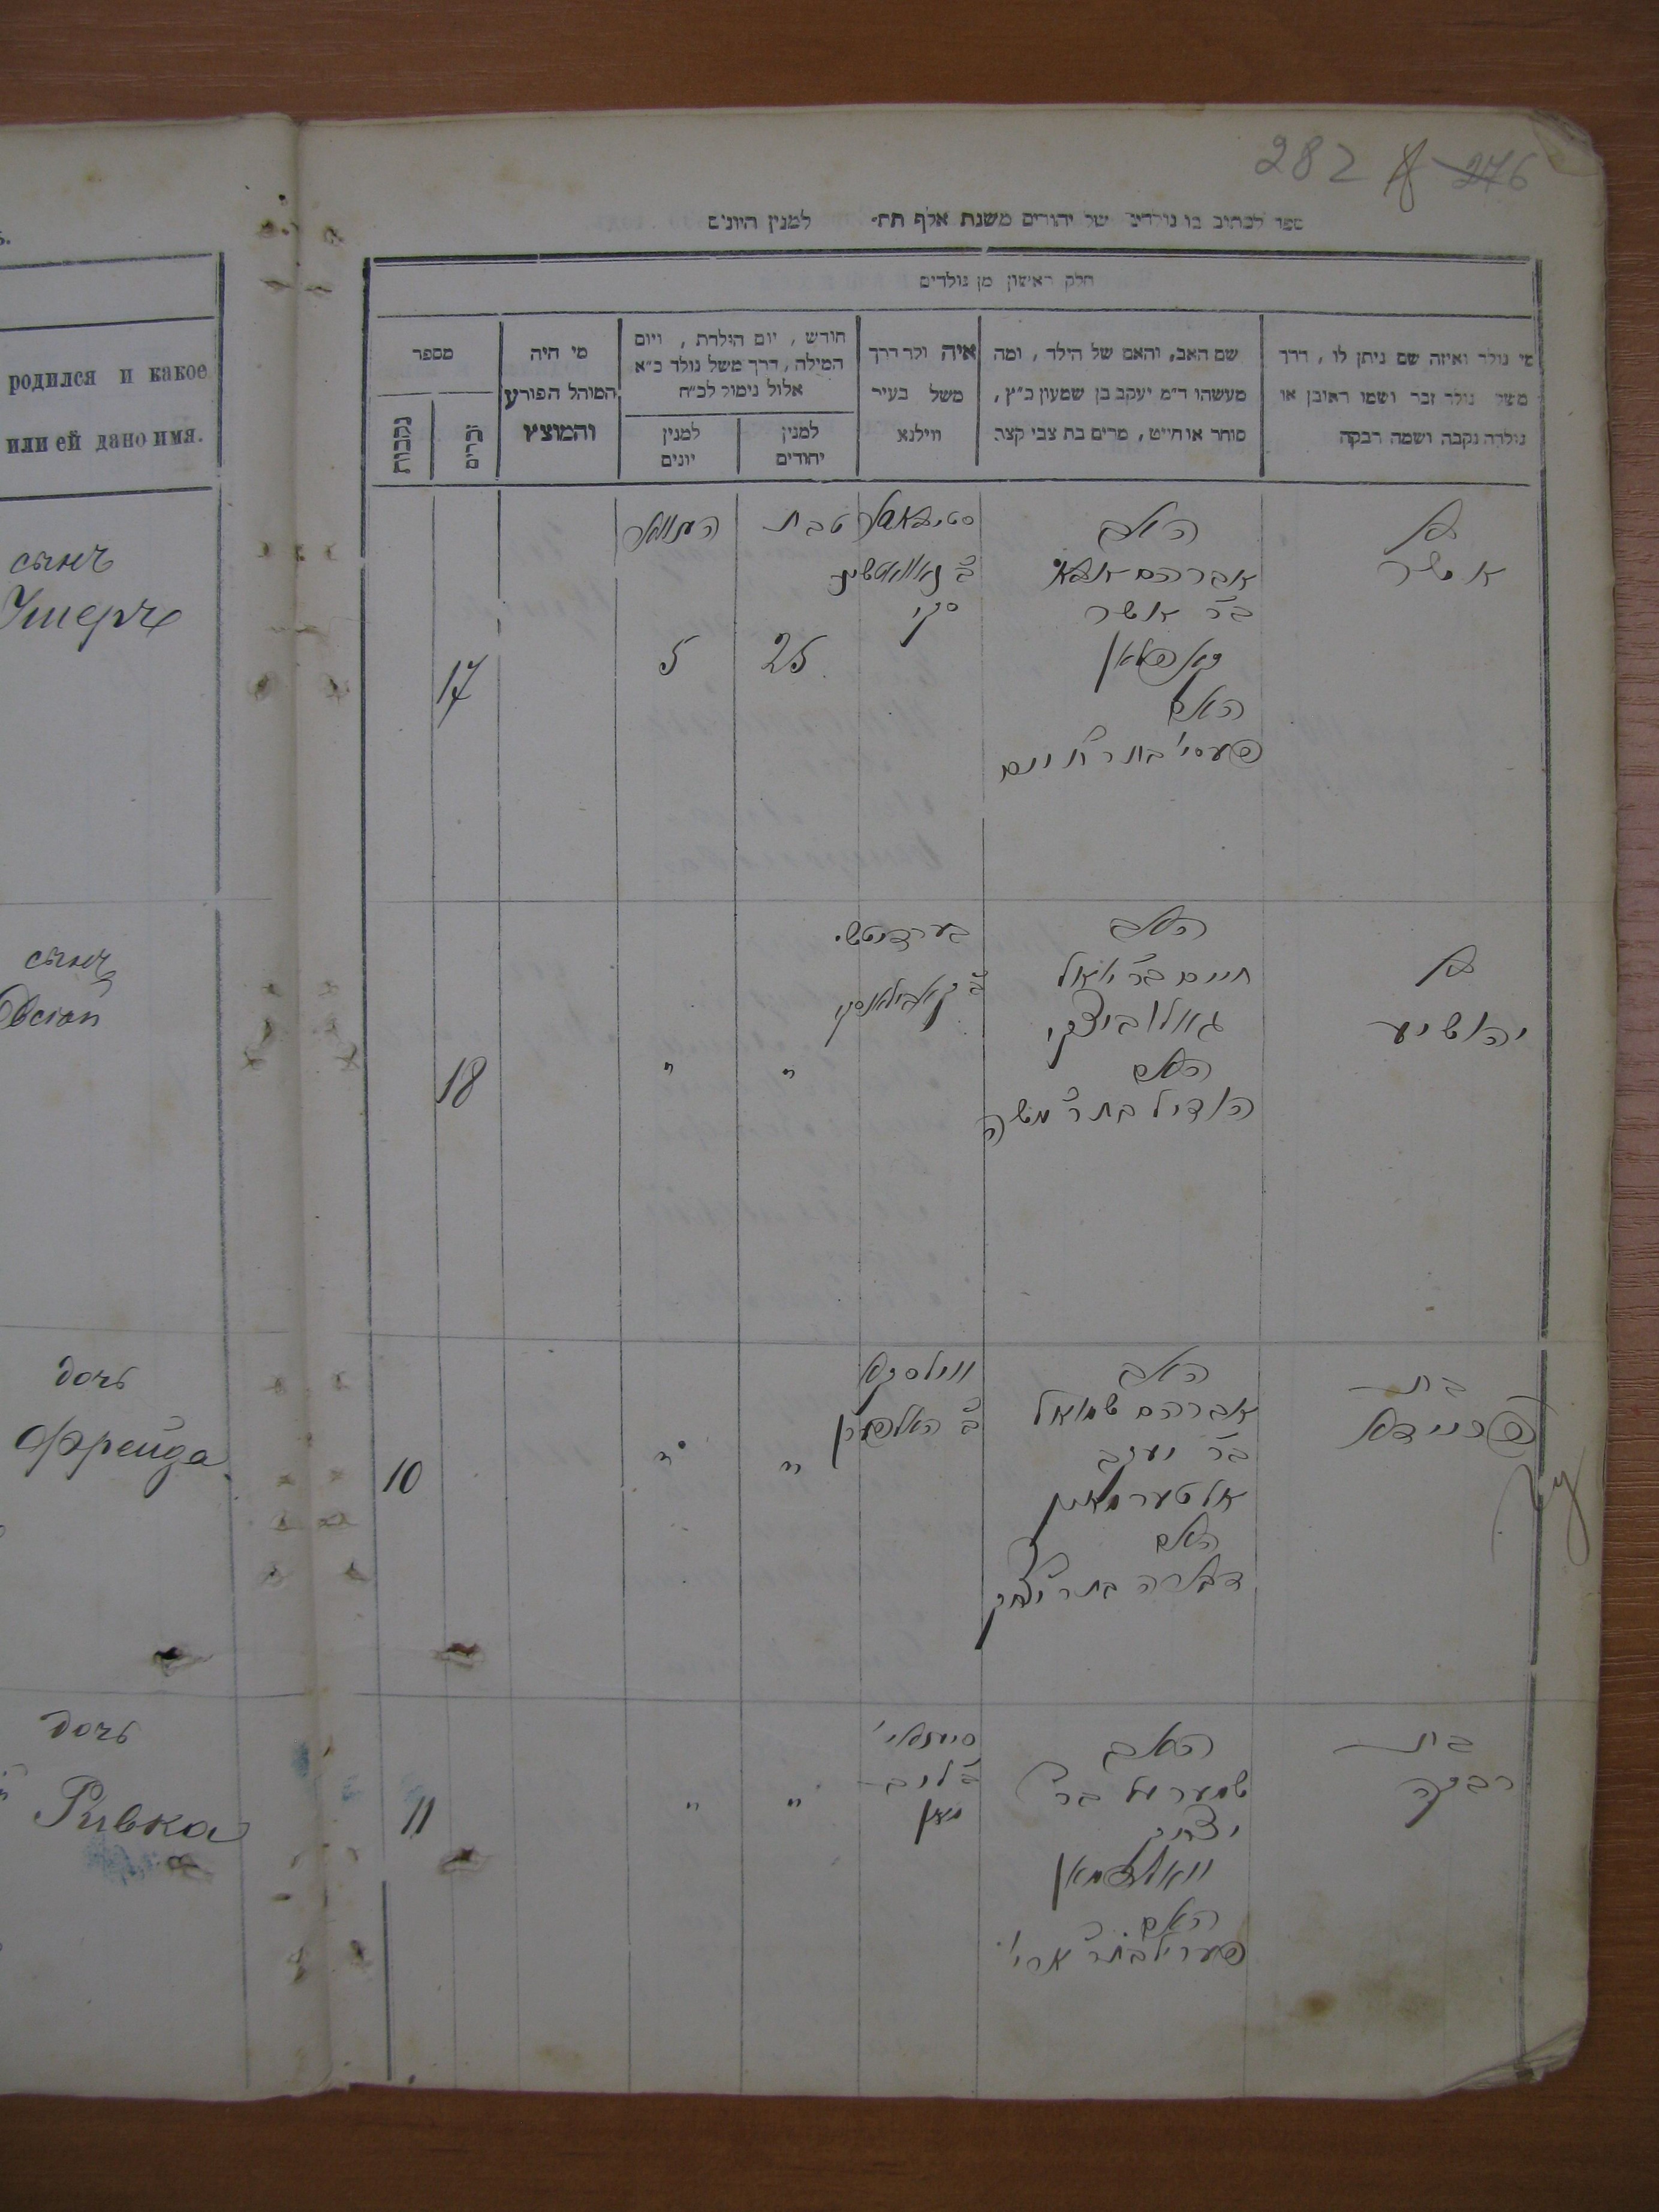 282 276
ספר לכתוב בו נולדים של יהודים משנת אלף תת״ למנין היונים
חלק ראשון מן נולדים
מי נולד ואיזה שם ניתן לו, דרך
משל נולד זכר ושמו ראובן או
נולדה נקבה ושמה רבקה
שם האב, והאם של הילד, ומה
מעשהו ד״מ יעקב בן שמעון כ״ץ,
סוחר או חייט, מרים בת צבי קצב
איה ולד דרך
משל בעיר
ווילנא
חודש, יום הולדת, ויום
המילה, דרך משל נולד כ״א
אלול נימול לכ״ח
למנין
יהודים
למנין
יונים
מי היה
המוהל הפורע
והמוצץ
מספר
זכרים
נקבות
родился и какое
или ей дано имя.
סынъ
Ушеръ
בן
אשר
האב
אברהם אבא
בר אשר
האם
פעסי' בת ר' חיים
טבת
25
5
17
сынъ
Овсій
בן
יהושיע
האב
חיים בר יואל
האם
הודיל בת ר' משה
בערדיטש'
"
"
18
дочь
Фрейда
בת
פריידא
האב
אברהם שמואל
בר יעקב
אלטערמאן
האם
דבורה בת ר' יצחק
"
"
10
дочь
Ривка
בת
רבקה
האב
שמעריל בר
יצחק
וואלפמאן
האם
פעריל בת ר' ארי'
"
"
11